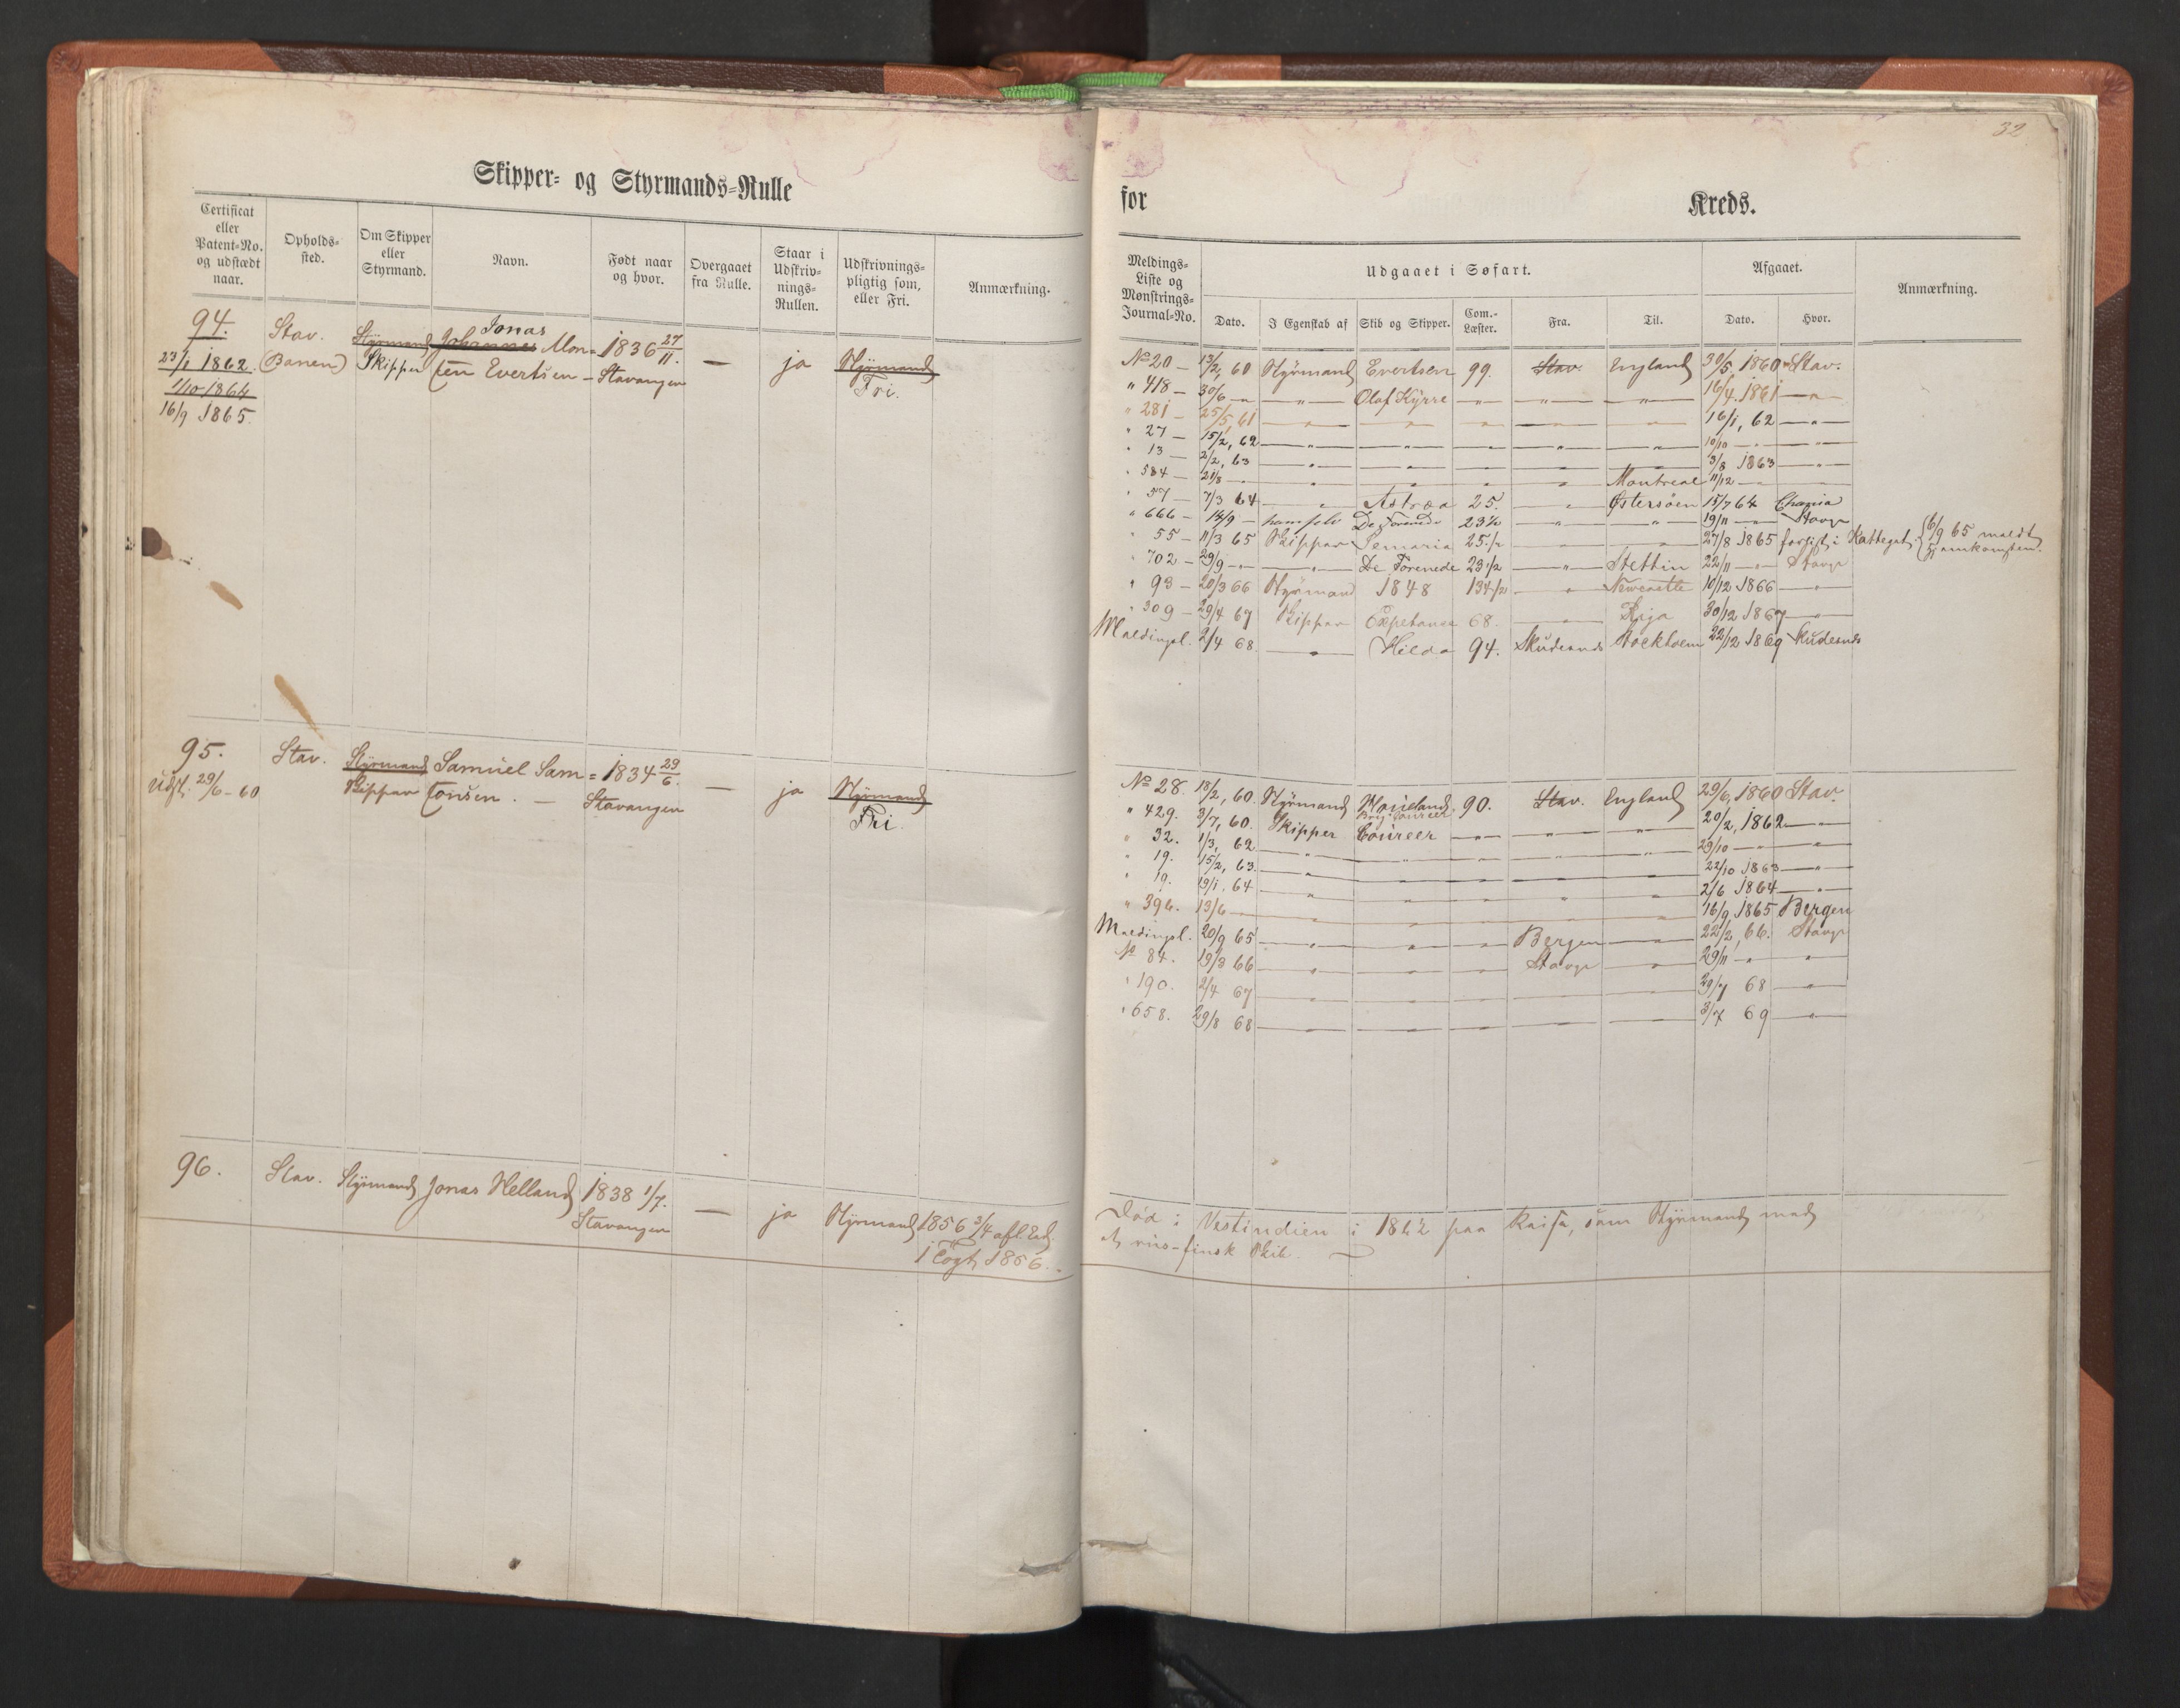 32
Skipper- og Styrmands-Rulle
for
Kreds.
Certificat eller Patent-No. og udstædt naar.
Opholds-sted.
Om Skipper eller Styrmand.
Navn.
Født naar og hvor.
Overgaaet fra Rulle.
Staar i Udskriv-nings-Rullen.
Udskrivnings-pligtig som, eller Fri.
Anmærkning.
Meldings-Liste og Mønstrings-Journal-No.
Udgaaet i Søfart.
Afgaaet.
Anmærkning.
Dato.
I Egenskab af
Skib og Skipper.
Com.-Læster.
Fra.
Til.
Dato.
Hvor.
94. Stav. Styrmand Jonas
Johannes Mon= 1836 27/11. — ja Styrmand
23/1 1862 Skipper sen Evertsen — Stavanger Fri.
1/10 1864
16/9 1865
No 20 — 13/2, 60 Styrmand Evertsen 99. Stav. England 30/5 1860 Stav.
" 418 — 30/6 — " — " — Olaf Kyrre — " — " — " — 16/4 1861 — " —
" 281 — 25/5, 61 — " — " — " — " — " — 16/1, 62 — " —
" 27 — 15/2, 62 — " — " — " — " — " — 10/10 — " — " —
" 13 — 2/2, 63 — " — " — " — " — " — 3/8 1863 — " —
" 584 — 21/8 — " — " — " — " — " Montreal 11/12 — " —
" 57 — 7/3 64 — " — Astræa 25. — " — Østersøen 15/7 64
" 666 — 14/9 — De Forenede 23 1/2 — " — " — 19/11 — " — Stavgr
" 55 — 11/3 65 Skipper 25 1/2 — " — " — 27/8 1865 forlist i Kattegat. 6/9 65 meldt Hjemkomsten.
" 702 — 29/9 — " — " — De Forenede 23 1/2 — " — Stettin 22/11 — " — Stavgr
" 93 — 20/3 66 Styrmand 1848 134 1/2 — " — Newcastle 10/12 1866 — " —
" 309 — 29/4 67 Skipper 68. — " — Riga 30/12 1867 — " —
Meldingsl. 2/4 68. — " — Hilda 94. Skudesnæs Stockholm 22/12 1869 Skudesnæs
95. Stav. Styrmand Samuel Sam= 1834 29/6. — ja Styrmand
Udst. 29/6 - 60 Skipper sonsen. — Stavanger Fri.
No 28. 18/2, 60. Styrmand 90. Stav. England 29/6, 1860 Stav.
" 429. 3/7, 60. Skipper Coureer — " — " — " — 20/2, 1862 — " —
" 32. 1/3, 62 — " — " — " — " — " — 29/10 — " — " —
" 19. 15/2, 63. — " — " — " — " — " — 22/10 1863 — " —
" 19. 19/1. 64 — " — " — " — " — " — 2/6 1864 — " —
" 396. 13/6 — " — " — " — " — " — 16/9, 1865 Bergen
Meldingsl. 20/9 65 — " — " — " — Bergen — " — 22/2, 66. Stavgr
No 84. 19/3 66 — " — " — " — Stavgr — " — 29/11 — " — " —
" 190. 2/4 67 — " — " — " — " — " — 29/7 68 — " —
" 658. 29/8 68 — " — " — " — " — " — 3/7 69 — " —
96. Stav. Styrmand Jonas Helland 1838 1/7. — ja Styrmand 1856 3/4 afl. Ed.
Stavanger i Togt 1856.
Død i Vestindien i 1862 paa Reise, som Styrmand med
et russ-finsk Skib.